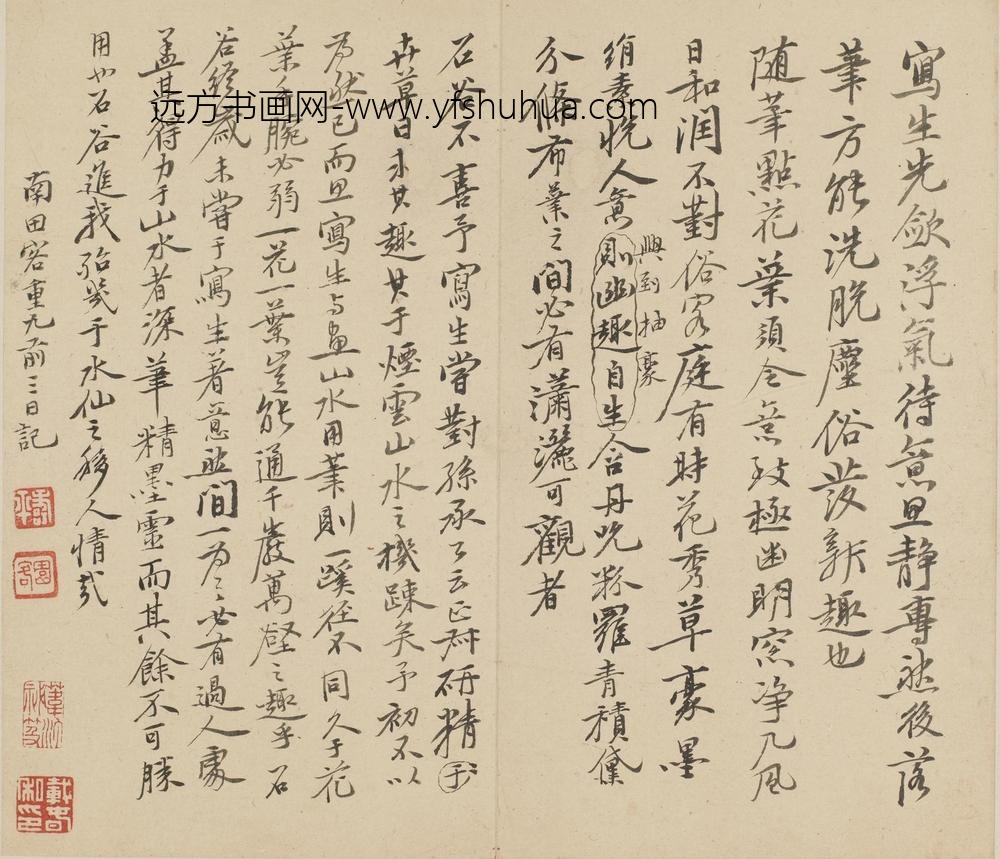 寫生先斂浮氣待意思静專然後落
筆方能洗脱塵俗發新趣也
随筆點花葉須令意致極幽明窓净几风
日和润不對俗客庭有時花秀草豪墨
绢素悦人意則幽趣自生含丹吮粉羅青積黛
興到抽豪
分條布葉之間必有瀟灑可觀者
石谷不喜予寫生嘗對孫承公云正叔研精于
卉草日求其趣其于煙雲山水之機踈矣予初不以
为然已而思寫生与畫山水用筆則一蹊徑不同久于花
葉手腕必弱一花一葉豈能通千巖萬壑之趣乎石
谷終歳未嘗于寫生著意然間一为之必有過人處
盖其得力于山水者深筆精墨靈而其餘不可勝
用也石谷進我殆幾于水仙之移人情哉
南田客重九前三日記
远方书画网-www.yfshuhua.com